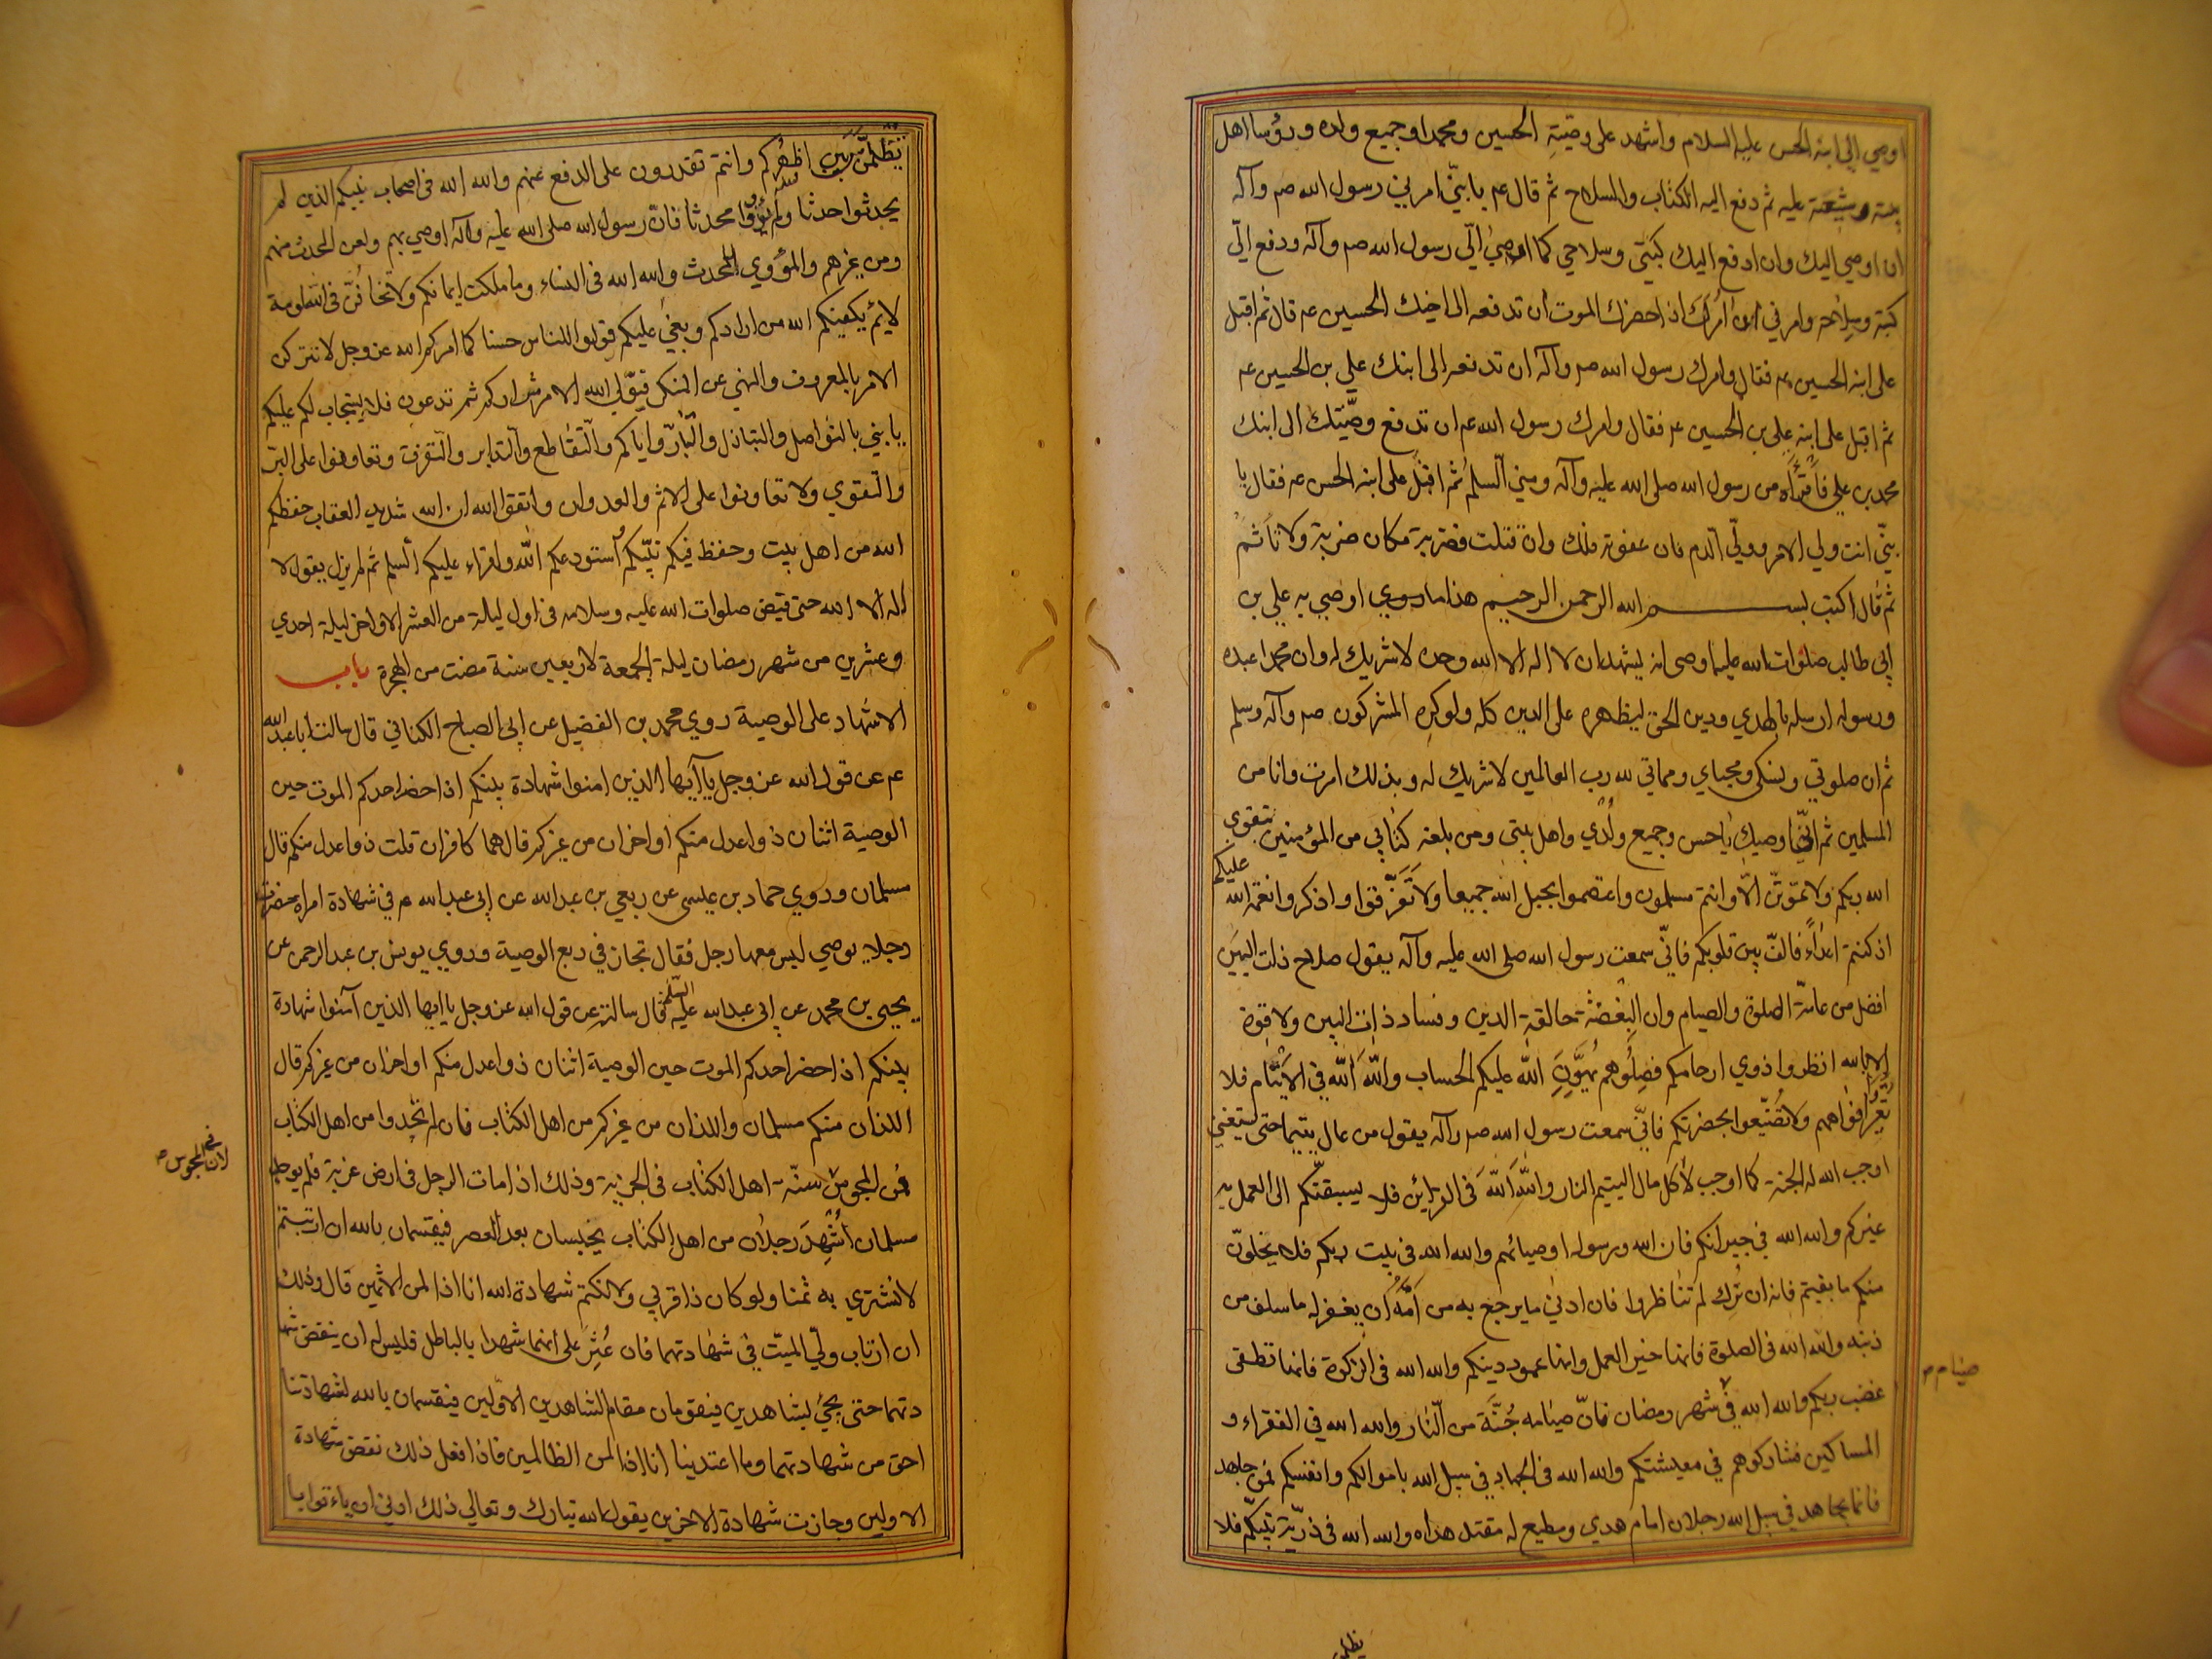 اوصي الي ابنه الحسن عليه السلام واشهد على وصيته الحسين ومحمدا وجميع ولده ورؤسا اهل
بيته وشيعته عليه ثم دفع اليه الكتاب والسلاح ثم قال عم يا بنيّ امرني رسول الله صم وآله
ان اوصي اليك وان ادفع اليك كتبى وسلاحي كما اوصي اليّ رسول الله صم وآله ودفع اليّ
كتبه وسلاحه وامرني ان آمرك اذا حضرك الموت ان تدفعه الى اخيك الحسين عم قال ثم اقبل
على ابنه الحسين عم فقال وامرك رسول الله صم وآله ان تدفعه الى ابنك علي بن الحسين عم
ثم اقبل على ابنه علي بن الحسين عم فقال وامرك رسول الله عم ان تدفع وصيّتك الى ابنك
محمد بن علي فاقرأه من رسول الله صلى الله عليه وآله ومني السلم ثم اقبل على ابنه الحسن عم فقال يا
بنيّ انت ولي الامر ووليّ الدم فان عفوت فلك وان قتلت فضربة مكان ضربة ولا تأثم
ثم قال اكتب بسم الله الرحمن الرحيم هذا ما اوصي به علي بن
ابي طالب صلوات الله عليهما وصى انه يشهد ان لا اله الا الله وحده لا شريك له وان محمدا عبده
ورسوله ارسله بالهدي ودين الحق ليظهره على الدين كله ولو كره المشركون صم وآله وسلم
ثم ان صلوتي ونسكى ومحياي ومماتي لله رب العالمين لا شريك له وبذلك امرت وانا من
المسلمين ثم انّي اوصيك يا حسن وجميع ولدي واهل بيتى ومن بلغه كتابي من المؤمنين بتقوي
الله ربكم ولا تموتنّ الّا وانتم مسلمون واعتصموا بحبل الله جميعا ولا تفرّقوا واذكروا نعمة الله عليكم
اذ كنتم اعداءً فالف بين قلوبكم فانّي سمعت رسول الله صلى الله عليه وآله يقول صلاح ذات البين
افضل من عامّة الصلوة والصيام وان البغضة حالقة الدين وفساد ذات البين ولا قوة
الا بالله انظروا ذوي ارحامكم فصلوهم يهوّن الله عليكم الحساب والله الله في الايتام فلا
تعرّ افواههم ولا تضيّعوا بحضرتكم فانّي سمعت رسول الله صم وآله يقول من عال يتيما حتى يستغني
اوجب الله له الجنة كما اوجب لآكل مال اليتيم النار والله الله فى القرائن فلا يسبقنّكم الى العمل به
غيركم والله الله في جيرانكم فان الله ورسوله اوصيائهم والله الله فى بيت ربكم فلا يخلونّ
منكم ما بقيتم فانه ان ترك لم تناظروا فان ادنى ما يرجع به من امّه ان يغفر له ما سلف من
ذنبه والله الله فى الصلوة فانها خير العمل وانها عمود دينكم والله الله فى الزكوة فانها تطفى
غضب ربكم والله الله في شهر رمضان فانّ صيامه جُنّة من النار والله الله في الفقراء و
صيام م
المساكين فشاركوهم في معيشتكم والله الله فى الجهاد في سبيل الله باموالكم وانفسكم فمن جاهد
فانما يجاهد في سبيل الله رجلان امام هدي ومطيع له مقتد هداه والله الله فى ذريّة نبيّكم فلا
تظلمنّ بين اظهركم وانتم تقدرون على الدفع عنهم والله الله فى اصحاب نبيكم الذين لم
يحدثوا حدثا ولم يؤوّا محدثا فانّ رسول الله صلى الله عليه وآله اوصي بهم ولعن المحدث منهم
ومن غيرهم والمؤوي للمحدث والله الله فى النساء وما ملكت ايمانكم ولا تخافنّ فى الله لومة
لائم يكفيكم الله من ارادكم وبغي عليكم قولوا للناس حسنا كما امركم الله عز وجل لا تتركن
الامر بالمعروف والنهي عن المنكر فيولّي الله الامر شراركم ثم تدعون فلا يستجاب لكم عليكم
يا بني بالتواصل والتباذل والتبارّ واياكم والتقاطع والتدابر والتفرق وتعاونوا على البرّ
والتقوي ولا تعاونوا على الاثم والعدوان واتقوا الله ان الله شديد العقاب حفظكم
الله من اهل بيت وحفظ فيكم نبيّكم أستودعكم الله واقراء عليكم السلم ثم لم يزل يقول لا
اله الا الله حتى قبض صلوات الله عليه وسلامه فى اول ليلة من العشر الاواخر ليلة احدي
وعشرين من شهر رمضان ليلة الجمعة لاربعين سنة مضت من الهجرة باب
الاشهاد على الوصية روي محمد بن الفضيل عن ابي الصباح الكناني قال سالت ابا عبد الله
عم عن قول الله عز وجل يا آيها الذين امنوا شهادة بينكم اذا حضر احدكم الموت حين
الوصية اثنان ذوا عدل منكم او اخران من غيركم قال هما كافران قلت ذوا عدل منكم قال
مسلمان وروي حماد بن عيسى عن ربعي بن عبد الله عن ابي عبد الله عم في شهادة امراة حضرت
رجلا يوصي ليس معها رجل فقال تجاز في ربع الوصية وروي يونس بن عبد الرحمن عن
يحيى بن محمد عن ابي عبد الله عليه السلم قال سالته عن قول الله عز وجل يا ايها الذين آمنوا شهادة
بينكم اذا حضر احدكم الموت حين الوصية اثنان ذوا عدل منكم او اخران من غيركم قال
اللذان منكم مسلمان واللذان من غيركم من اهل الكتاب فان لم تجدوا من اهل الكتاب
فمن المجوس سنّة اهل الكتاب فى الجزية وذلك اذا مات الرجل فى ارض غربة فلم يوجد
لان فى المجوس
مسلمان أشهد رجلان من اهل الكتاب يحبسان بعد العصر فيقسمان بالله ان ارتبتم
لا نشتري به ثمنا ولو كان ذا قربي ولا نكتم شهادة الله انا اذا لمن الاثمين قال وذلك
ان ارتاب وليّ الميّت في شهادتهما فان عُثِرَ على انهما شهدا بالباطل فليس له ان ينقض شها
دتهما حتى يجئ بشاهدين فيقومان مقام الشاهدين الاوّلين فيقسمان بالله لشهادتنا
احق من شهادتهما وما اعتدينا انا اذا لمن الظالمين فاذا فعل ذلك نقض شهادة
الاولين وجازت شهادة الاخرين يقول الله تبارك وتعالي ذلك ادني ان ياءتوا با